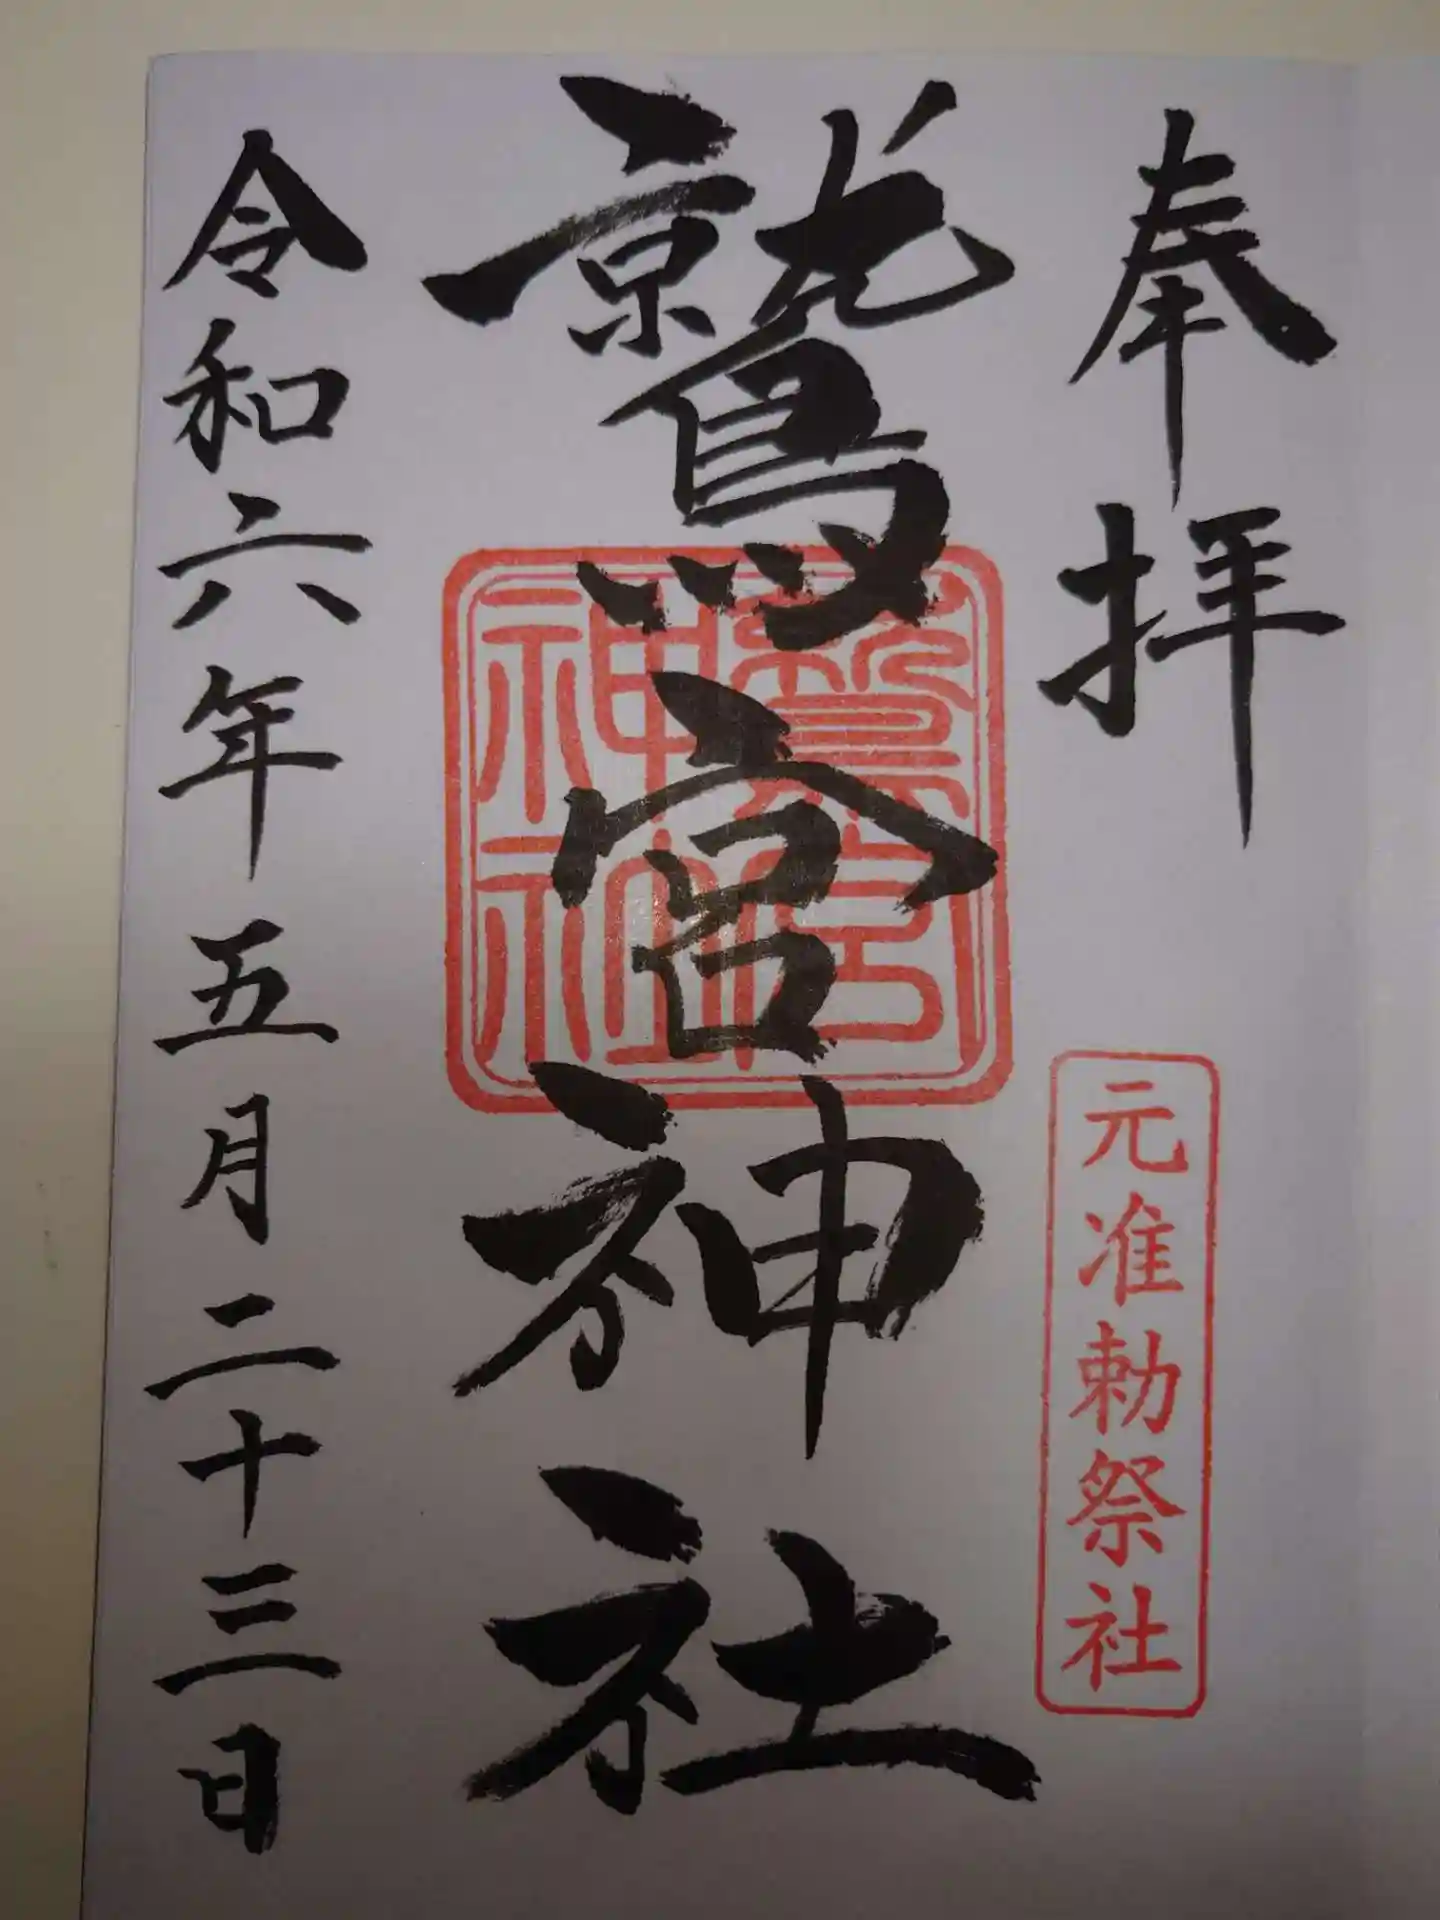 奉拝
元准勅祭社
鷲宮神社
鷲宮
神社
令和六年五月二十三日